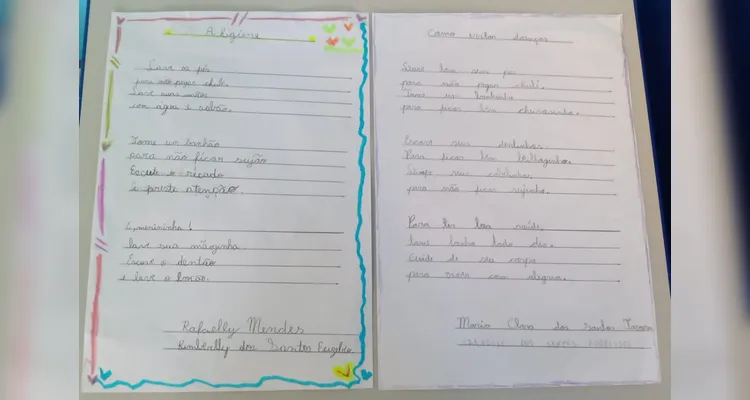 A higiene
Lave os pés
para não pegar chulé.
Lave suas mãos
com água e sabão.
Tome um banhão
para não ficar sujão
Escute o recado
e preste atenção.
Ei, menininha!
lave sua mãozinha
Escove o dentão
e lave o bocão.
Rafaelly Mendes
Kimberlly dos Santos
Como evitar doenças
Lave bem seu pé
para não pegar chulé.
Tome um banhinho
para ficar bem cheirosinho.
Escove seus dentinhos
Para ficar bem
seus
para não ficar sujinho.
Para ter boa saúde,
tome banho todo dia.
Cuide de seu corpo
para viver com alegria.
Maria Clara dos Santos